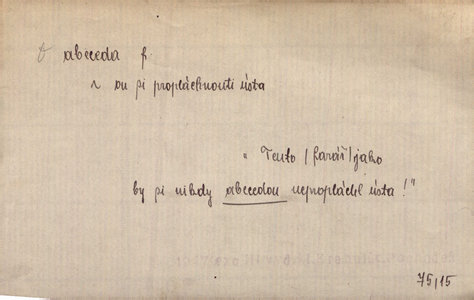 abeceda f.
on si propláchnouti ústa
„Tento /farář/ jako
by si nikdy abecedou nepropláchl ústa!"
75/15